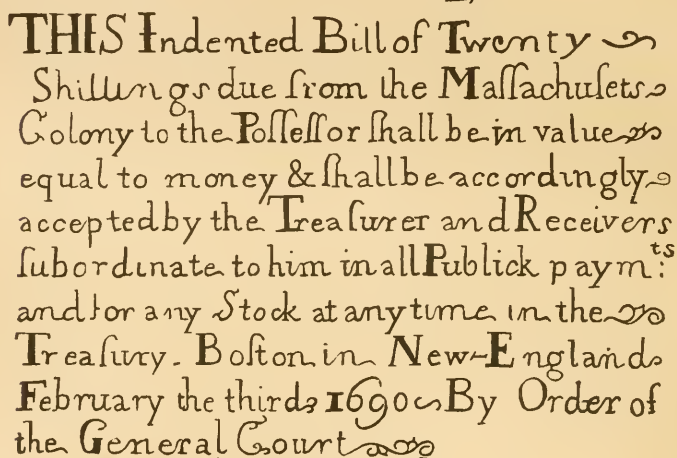 THIS Indented Bill of Twenty
Shillings due from the Maſſachuſets
Colony to the Poſſeſſor ſhall be in value
equal to money & ſhall be accordingly
accepted by the Treaſurer and Receivers
ſubordinate to him in all Publick paym:ts
and for any Stock at any time in the
Treaſury. Boſton in New-England
February the third 1690 By Order of
the General Court